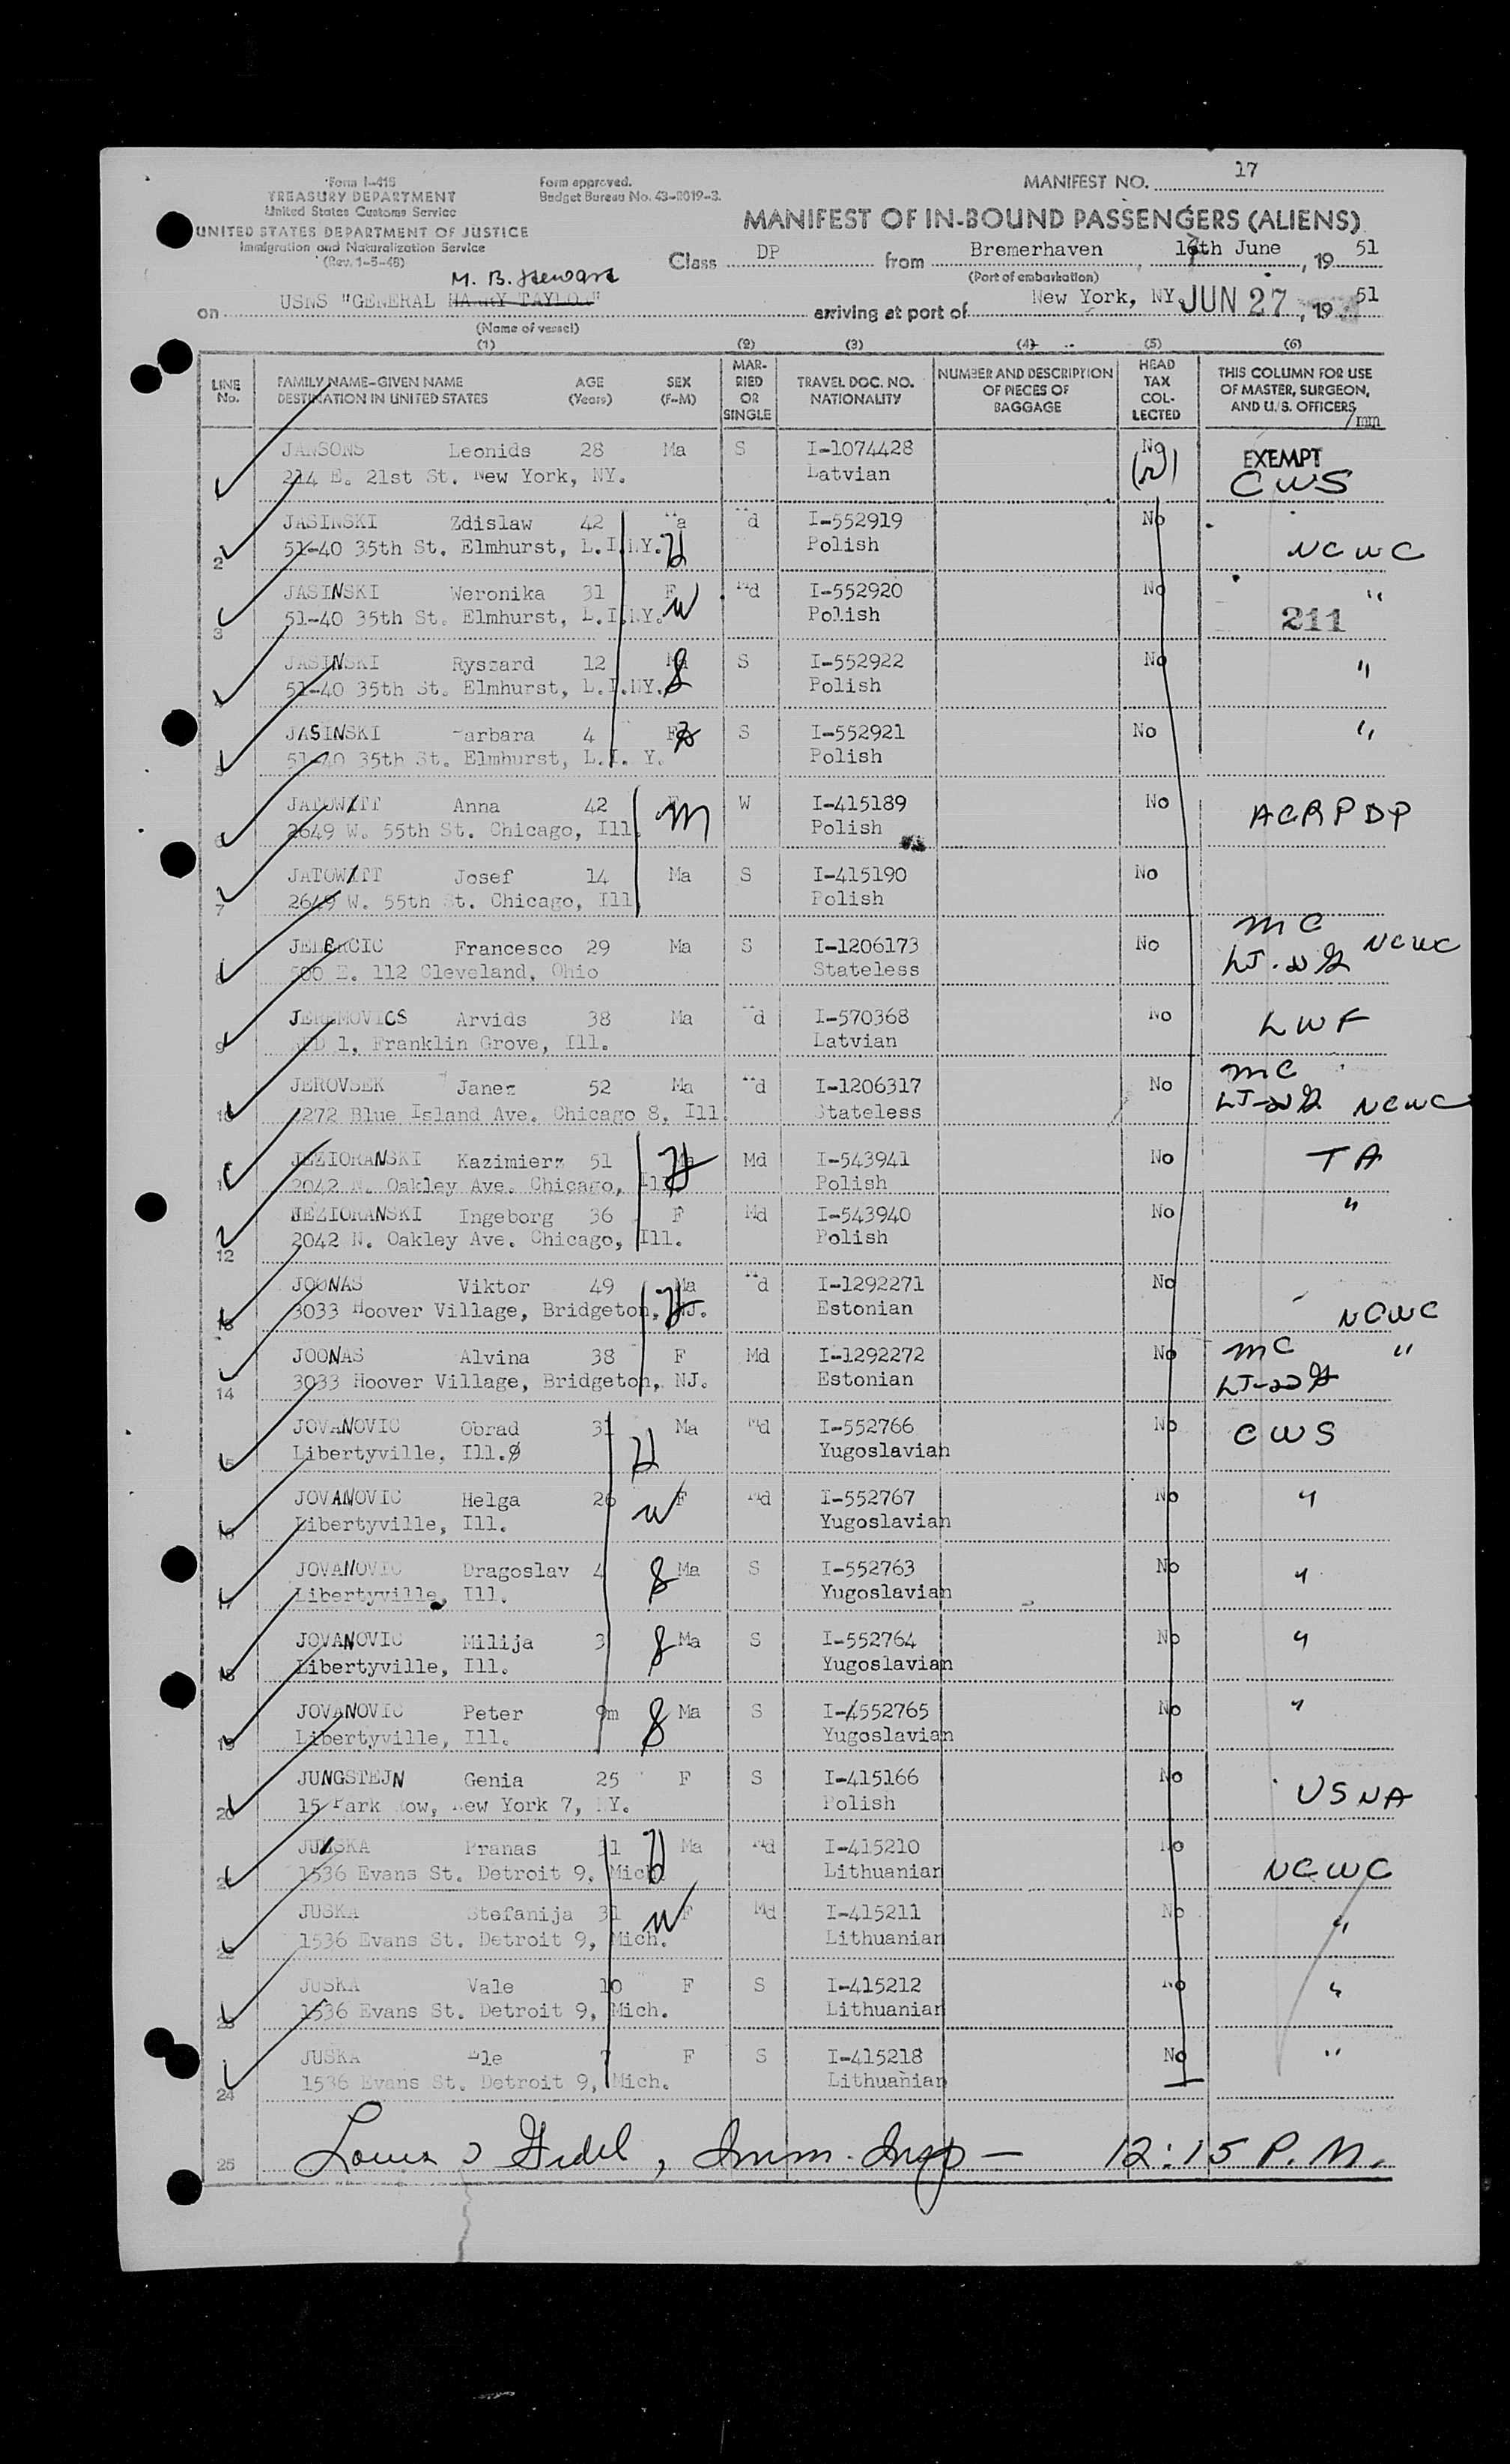 Form I-415
TREASURY DEPARTMENT
United States Customs Service
UNITED STATES DEPARTMENT OF JUSTICE
Immigration and Naturalization Service
(Rev. 1-5-48)
Form approved.
Budget Bureau No. 43-R019-3.
MANIFEST NO. 17
MANIFEST OF IN-BOUND PASSENGERS (ALIENS)
Class DP from Bremerhaven, 16th June, 1951
(Port of embarkation)
M. B. Stewart
on USNS "GENERAL HARRY TAYLOR" arriving at port of New York, NY. JUN 27, 1951
(Name of vessel)
(1) (2) (3) (4) (5) (6)
LINE No. FAMILY NAME-GIVEN NAME DESTINATION IN UNITED STATES AGE (Years) SEX (F-M) MARRIED OR SINGLE TRAVEL DOC. NO. NATIONALITY NUMBER AND DESCRIPTION OF PIECES OF BAGGAGE HEAD TAX COLLECTED THIS COLUMN FOR USE OF MASTER, SURGEON, AND U.S. OFFICERS
/mm
JANSONS Leonids 28 Ma S I-1074428 No EXEMPT
214 E. 21st St. New York, NY. Latvian CWS
JASINSKI Zdislaw 42 Ma Md I-552919 No
2 51-40 35th St. Elmhurst, L.I.NY. H Polish NCWC
JASINSKI Weronika 31 F Md I-552920 No "
3 51-40 35th St. Elmhurst, L.I.NY. W Polish 211
JASINSKI Ryszard 12 Ma S I-552922 No "
51-40 35th St. Elmhurst, L.I.NY. Polish
JASINSKI Barbara 4 F S I-552921 No "
5 51-40 35th St. Elmhurst, L.I. Y. Polish
JATOWITT Anna 42 F W I-415189 No ACRPDP
6 2649 W. 55th St. Chicago, Ill. M Polish
JATOWITT Josef 14 Ma S I-415190 No
7 2649 W. 55th St. Chicago, Ill. Polish
JELERCIC Francesco 29 Ma S I-1206173 No MC NCWC
8 E. 112 Cleveland, Ohio Stateless
JEREMOVICS Arvids 38 Ma Md I-570368 No LWF
9 RFD 1, Franklin Grove, Ill. Latvian
JEROVSEK Janez 52 Ma Md I-1206317 No MC
10 2272 Blue Island Ave. Chicago 8, Ill. Stateless NCWC
JEZIORANSKI Kazimierz 51 Ma Md I-543941 No TA
11 2042 N. Oakley Ave. Chicago, Ill. H Polish
JEZIORANSKI Ingeborg 36 F Md I-543940 No "
12 2042 N. Oakley Ave. Chicago, Ill. Polish
JOONAS Viktor 49 Ma Md I-1292271 No
13 3033 Hoover Village, Bridgeton, NJ. H Estonian NCWC
JOONAS Alvina 38 F Md I-1292272 No MC "
14 3033 Hoover Village, Bridgeton, NJ. Estonian
JOVANOVIC Obrad 31 Ma Md I-552766 No CWS
15 Libertyville, Ill. H Yugoslavian
JOVANOVIC Helga 26 F Md I-552767 No "
16 Libertyville, Ill. W Yugoslavian
JOVANOVIC Dragoslav 4 Ma S I-552763 No "
17 Libertyville, Ill. Yugoslavian
JOVANOVIC Milija 3 Ma S I-552764 No "
18 Libertyville, Ill. Yugoslavian
JOVANOVIC Peter 9m Ma S I-552765 No "
19 Libertyville, Ill. Yugoslavian
JUNGSTEJN Genia 25 F S I-415166 No USNA
20 15 Park Row, New York 7, NY. Polish
JUSKA Pranas 31 Ma Md I-415210 No
21 1536 Evans St. Detroit 9, Mich. H Lithuanian NCWC
JUSKA Stefanija 31 F Md I-415211 No "
22 1536 Evans St. Detroit 9, Mich. W Lithuanian
JUSKA Vale 10 F S I-415212 No "
23 1536 Evans St. Detroit 9, Mich. Lithuanian
JUSKA 7 F S I-415218 No "
24 1536 Evans St. Detroit 9, Mich. Lithuanian
25 Louis Fidel, Imm. Insp — 12:15 P.M.